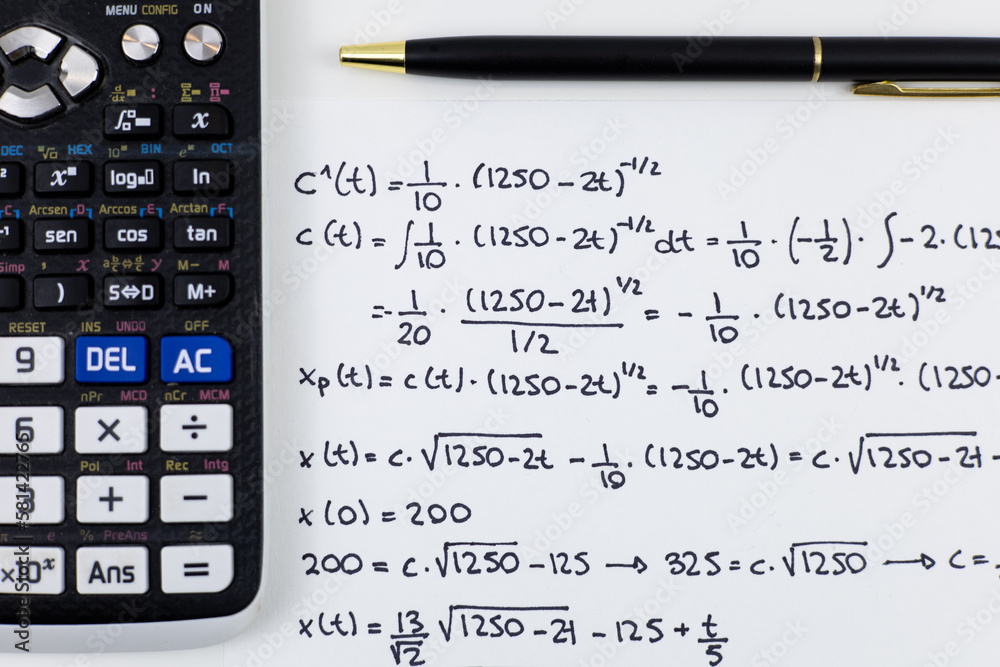 MENU CONFIG ON
d/dx ∎ : Σ- Π-
∫ x
DEC ⁿ√ HEX 10 BIN e OCT
x log ln
Arcsen D Arccos E Arctan F
sen cos tan
Simp , x a b/c ⇔ d/c y M– M
) S⇔D M+
RESET INS UNDO OFF
9 DEL AC
nPr MCD nCr MCM
× ÷
Pol Int Rec Intg
+ −
π e % PreAns ≈
×10ˣ Ans =
C^1(t) = 1/10 · (1250 − 2t)^-1/2
c(t) = ∫ 1/10 · (1250 − 2t)^-1/2 dt = 1/10 · (−1/2) · ∫ −2 · (12
= − 1/20 · (1250 − 2t)^1/2 / 1/2 = − 1/10 · (1250 − 2t)^1/2
xp(t) = c(t) · (1250 − 2t)^1/2 = − 1/10 · (1250 − 2t)^1/2 · (1250 -
x(t) = c · √1250 − 2t − 1/10 · (1250 − 2t) = c · √1250 − 2t -
x(0) = 200
200 = c · √1250 − 125 → 325 = c · √1250 → c =
x(t) = 13/√2 √1250 − 2t − 125 + t/5
Adobe Stock | #581422765